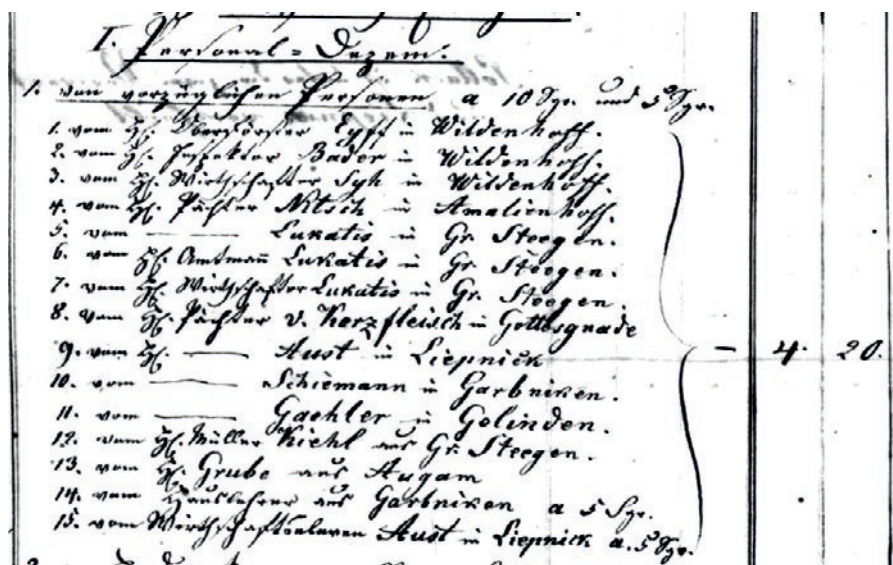 I. Personal = Dezem.
1. von vorzüglichen Personen a 10 Sgr. und 5 Sgr.
1. vom H. Oberförster Eyff in Wildenhoff.
2. vom H. Inspektor Bader in Wildenhoff.
3. vom H. Wirthschafter Syh in Wildenhoff.
4. vom H. Pächter Nitsch in Amalienhoff.
5. vom —— Lukatis in Gr. Steegen.
6. vom H. Amtmañ Lukatis in Gr. Steegen.
7. vom H. Wirthschafter Lukatis in Gr. Steegen.
8. vom H. Pächter v. Karzfleisch in Gottesgnade
9. vom H. —— Aust in Liepnick — 4. 20.
10. vom —— Schiemann in Garbniken.
11. vom —— Gaehler in Golinden.
12. vom H. Müller Kiehl aus Gr. Steegen.
13. vom H. Grube aus Augam
14. vom Hauslehrer aus Garbniken a 5 Sgr.
15. vom Wirthschaftseleven Aust in Liepnick a. 5 Sgr.